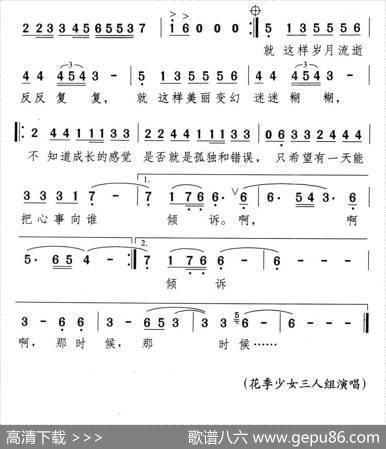 2 2 3 3 4 5 6 5 5 3 7 | i 6 0 0 0 :‖ 5 1 3 5 5 5 6
就 这样岁月流逝
4 4 4 5 4 3 - | 5 1 3 5 5 5 6 | 4 4 4 5 4 3 -
反反 复 复, 就 这样美丽变幻 迷迷 糊 糊,
2 4 4 1 1 3 3 2 2 4 4 1 1 3 3 | 0 6 3 3 2 4 4 2
不 知道成长的感觉 是否就是孤独和错误, 只希望有一天能
1.
3 3 3 1 7 - | 7 1 7 6 6 · 6 | 6 · 5 4 3 · 6
把心事向谁 倾 诉。啊, 啊
2.
5 · 6 5 4 - :‖ 7 1 7 6 6 - | 6 - - -
倾 诉
3 - 6 6 | 3 - 6 5 3 | 3 5 6 - - | 6 - - -
啊, 那 时 候, 那 时 候……
(花季少女三人组演唱)
高清下载 >>>
歌谱八六 www.gepu86.com